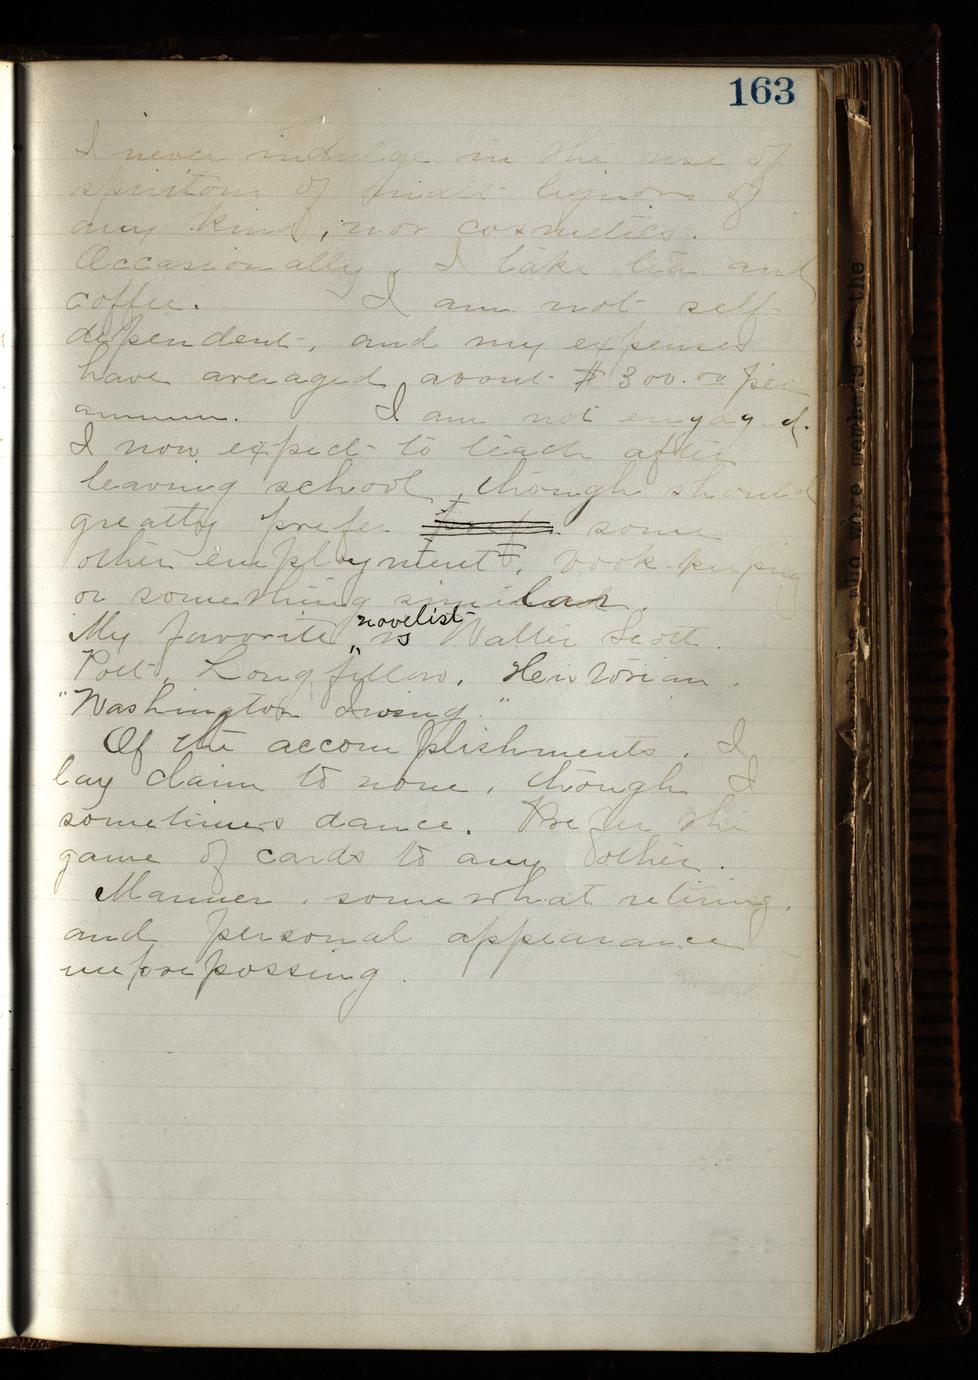 163
I never indulge in the use of
spiritous of malt liquors of
any kind, nor cosmetics.
Occasionally, I take tea and
coffee. I am not self-
dependent, and my expenses
have averaged about $300.00 per
annum. I am not engaged.
I now expect to teach after
leaving school, though should
greatly prefer some
other employment, book-keeping
or something similar.
My favorite novelist is Walter Scott.
Poet, Longfellow. Historian.
"Washington Irving."
Of the accomplishments, I
lay claim to none, though I
sometimes dance. Prefer the
game of cards to any other.
Manner, somewhat retiring,
and personal appearance
unprepossing.
who were members of the